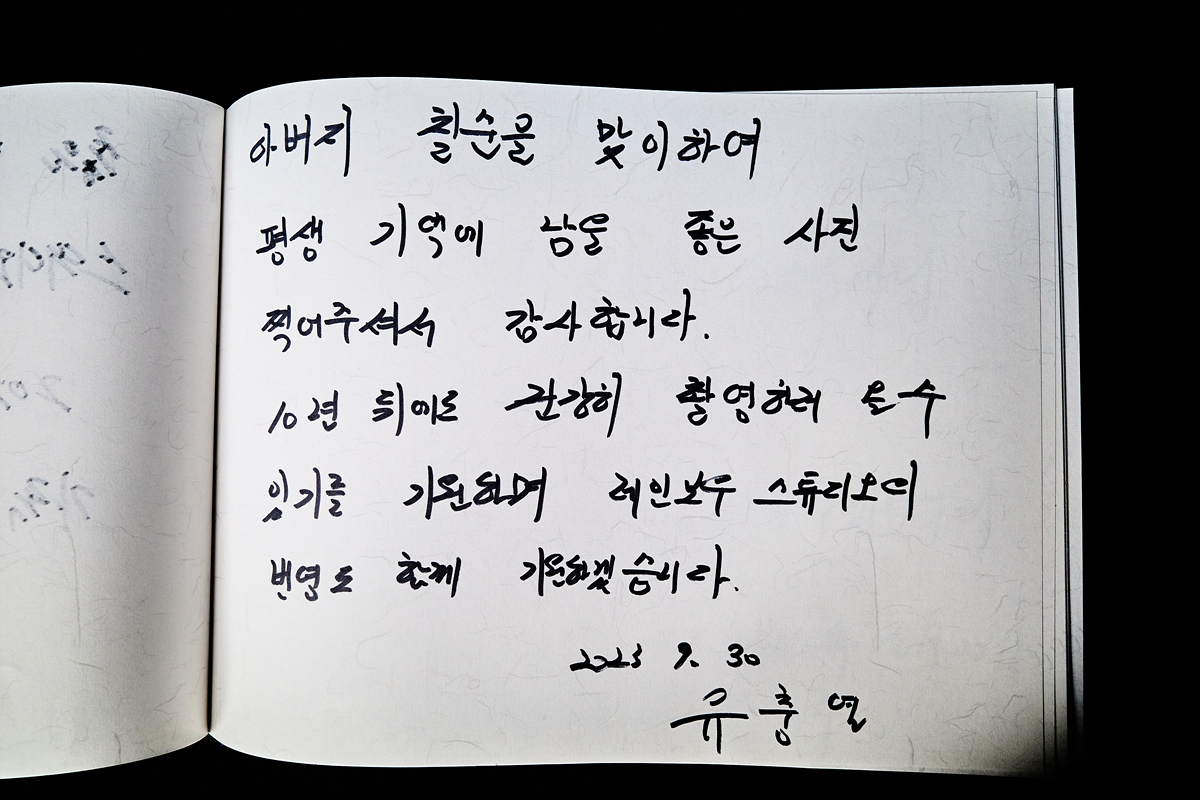 아버지 칠순을 맞이하여
평생 기억에 남을 좋은 사진
찍어주셔서 감사합니다.
10년 뒤에도 건강히 촬영하러 올 수
있기를 기원하며 레인보우 스튜디오의
번영도 함께 기원하겠습니다.
2023 9. 30
유충열